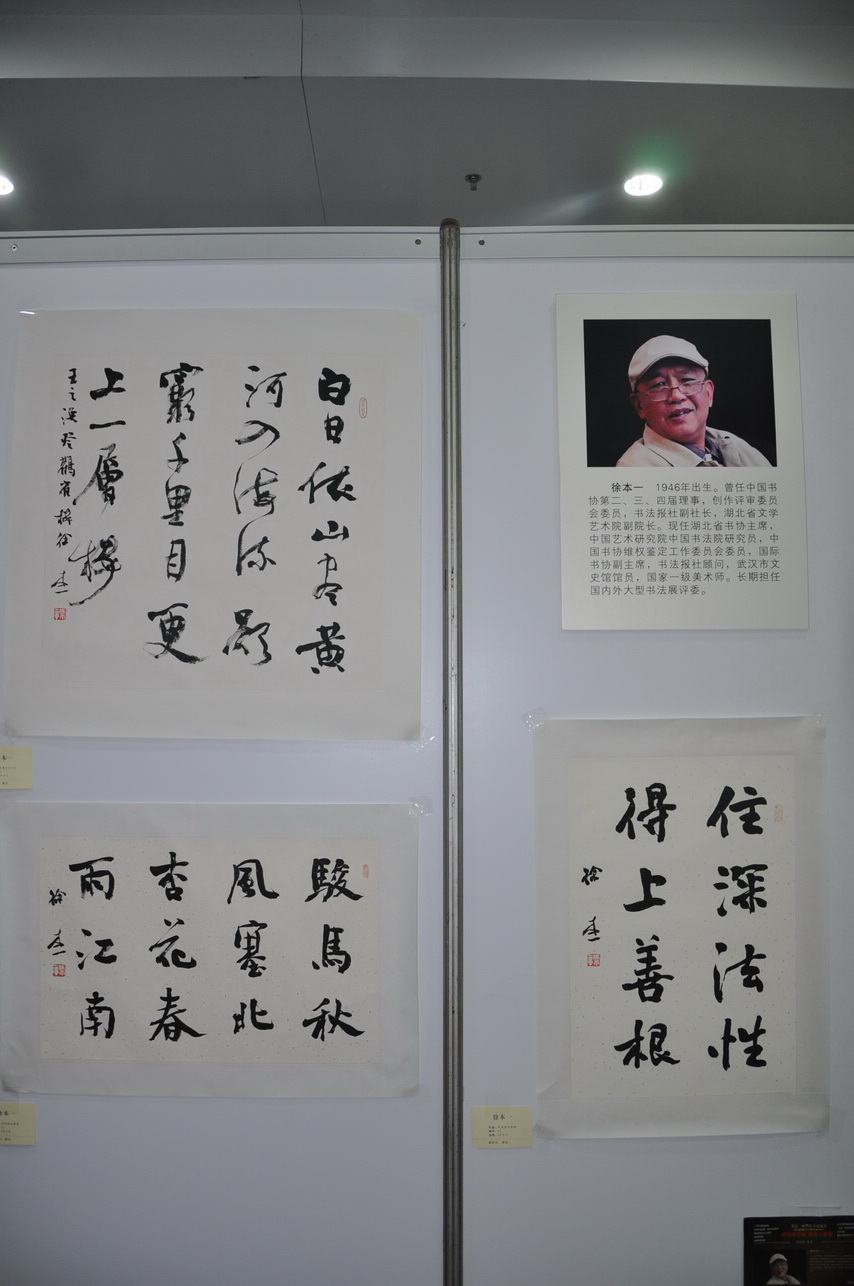 白日依山尽黄
河入海流欲
窮千里目更
上一層樓
王之渙登鸛雀樓徐本一
徐本一 1946年出生。曾任中国书
协第二、三、四届理事，创作评审委员
会委员，书法报社副社长，湖北省文学
艺术院副院长。现任湖北省书协主席，
中国艺术研究院中国书法院研究员，中
国书协维权鉴定工作委员会委员，国际
书协副主席，书法报社顾问，武汉市文
史馆馆员，国家一级美术师。长期担任
国内外大型书法展评委。
駿馬秋
風塞北
杏花春
雨江南
徐本一
住深法性
得上善根
徐本一
徐本一